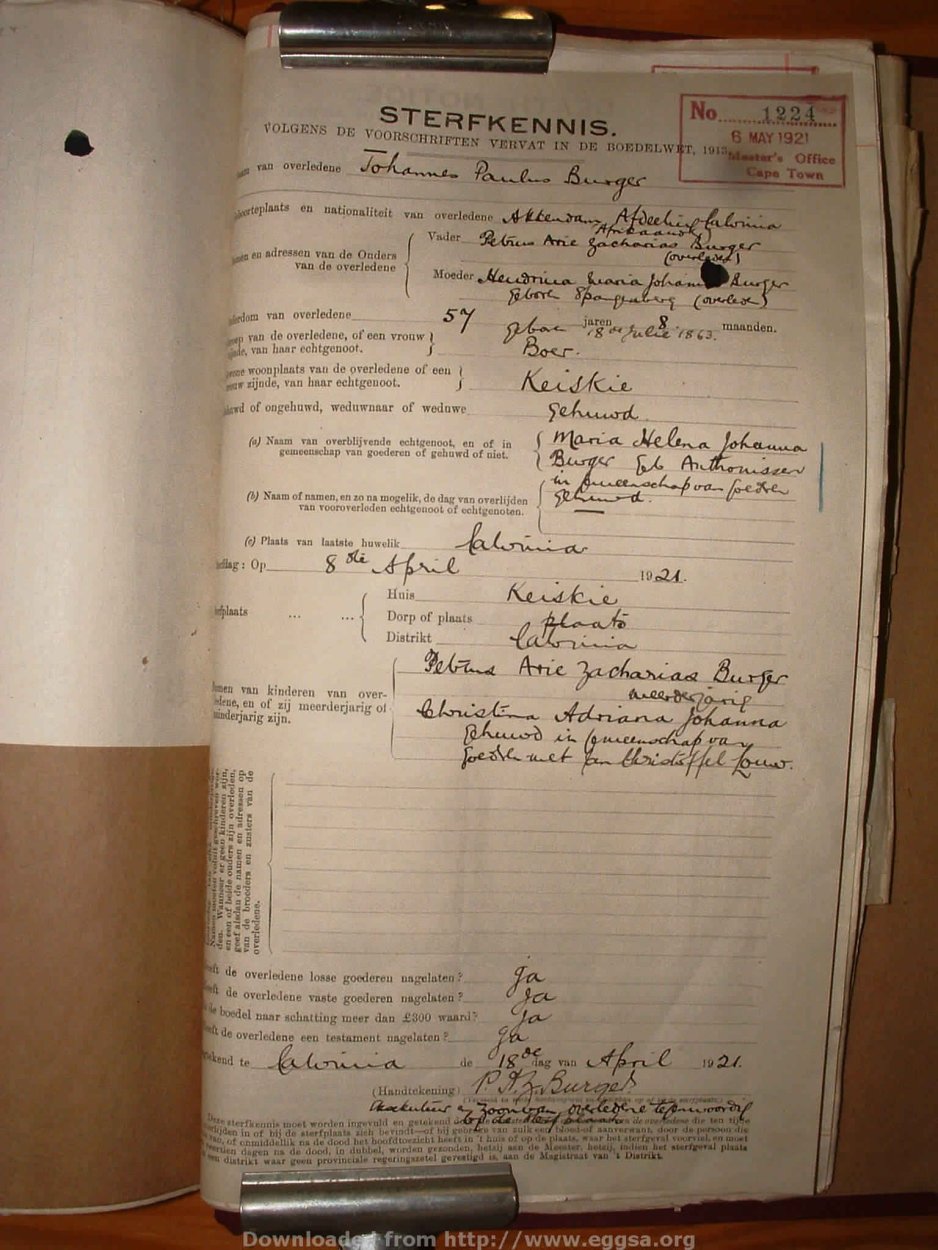 STERFKENNIS.
No. 1224
6 MAY 1921
Master's Office
Cape Town
VOLGENS DE VOORSCHRIFTEN VERVAT IN DE BOEDELWET, 1913.
van overledene Johannes Paulus Burger
en nationaliteit van overledene Akkendam, Afdeeling Calvinia
Afrikaansch
en adressen van de Ouders
van de overledene
Vader Petrus Arie Zacharias Burger
(overleden)
Moeder Hendrina Maria Burger
geboren Spangenberg (overleden)
van overledene 57 jaren 8 maanden.
geboren 18de Julie 1863.
van de overledene, of een vrouw
van haar echtgenoot. Boer.
woonplaats van de overledene of een
zijnde, van haar echtgenoot. Keiskie
of ongehuwd, weduwnaar of weduwe Gehuwd
(a) Naam van overblijvende echtgenoot, en of in
gemeenschap van goederen of gehuwd of niet.
Maria Helena Johanna
Burger Geb Anthonissen
in gemeenschap van goederen
gehuwd.
(b) Naam of namen, en zo na mogelik, de dag van overlijden
van vooroverleden echtgenoot of echtgenoten. —
(c) Plaats van laatste huwelik Calvinia
Op 8ste April 1921.
Huis Keiskie
Dorp of plaats plaats
Distrikt Calvinia
van kinderen van over-
en of zij meerderjarig of
minderjarig zijn.
Petrus Arie Zacharias Burger
meerderjarig
Christina Adriana Johanna
Gehuwd in gemeenschap van
goederen met Jan Christoffel Louw.
den. Wanneer er geen kinderen zijn,
en een of beide ouders zijn overleden,
geef alsdan de namen en adressen op
van de broeders en zusters van de
overledene.
de overledene losse goederen nagelaten? Ja
de overledene vaste goederen nagelaten? Ja
de boedel naar schatting meer dan £300 waard? Ja
de overledene een testament nagelaten? Ja
te Calvinia de 18de dag van April 1921.
(Handtekening) P. A. Z. Burger
Eksekuteur en zoon van overledene tegenwoordig
Deze sterfkennis moet worden ingevuld en getekend
in of bij de sterfplaats zich bevindt—of bij gebreke van zulk een bloed-of aanverwant door de persoon die
of onmiddelik na de dood het hoofdtoezicht heeft in 't huis of op de plaats, waar het sterfgeval voorviel, en moet
dagen na de dood, in dubbel, worden gezonden, hetzij aan de Meester, hetzij, indien het sterfgeval plaats
een distrikt waar geen provinciale regeringszetel gevestigd is, aan de Magistraat van 't Distrikt.
Downloaded from http://www.eggsa.org